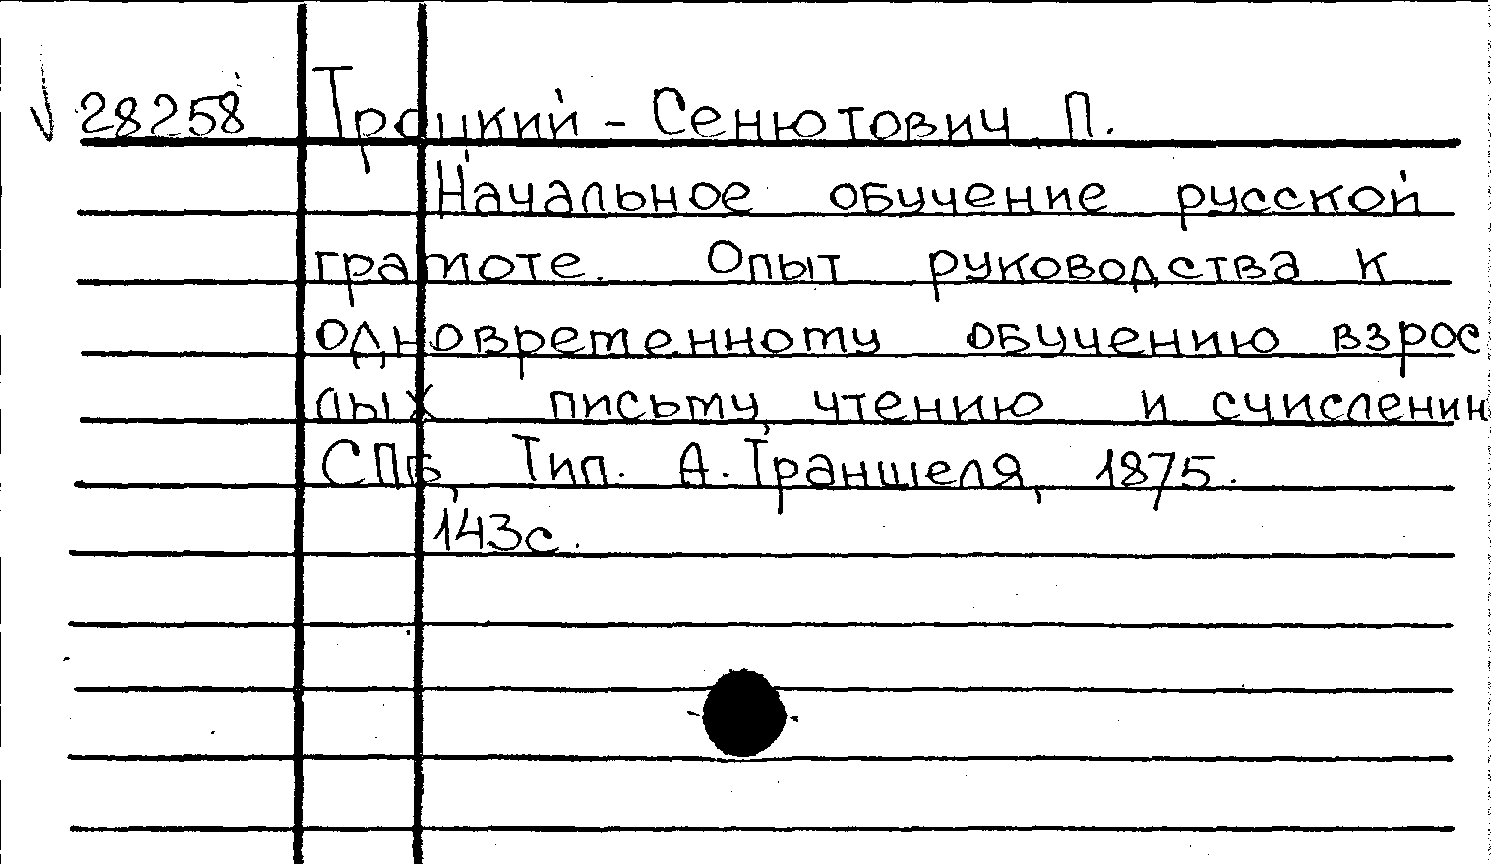 28258 Троцкий - Сенютович П.
Начальное обучение русской
грамоте. Опыт руководства к
одновременному обучению взрос
лых письму, чтению и счислении
СПб, Тип. А. Траншеля, 1875.
143с.